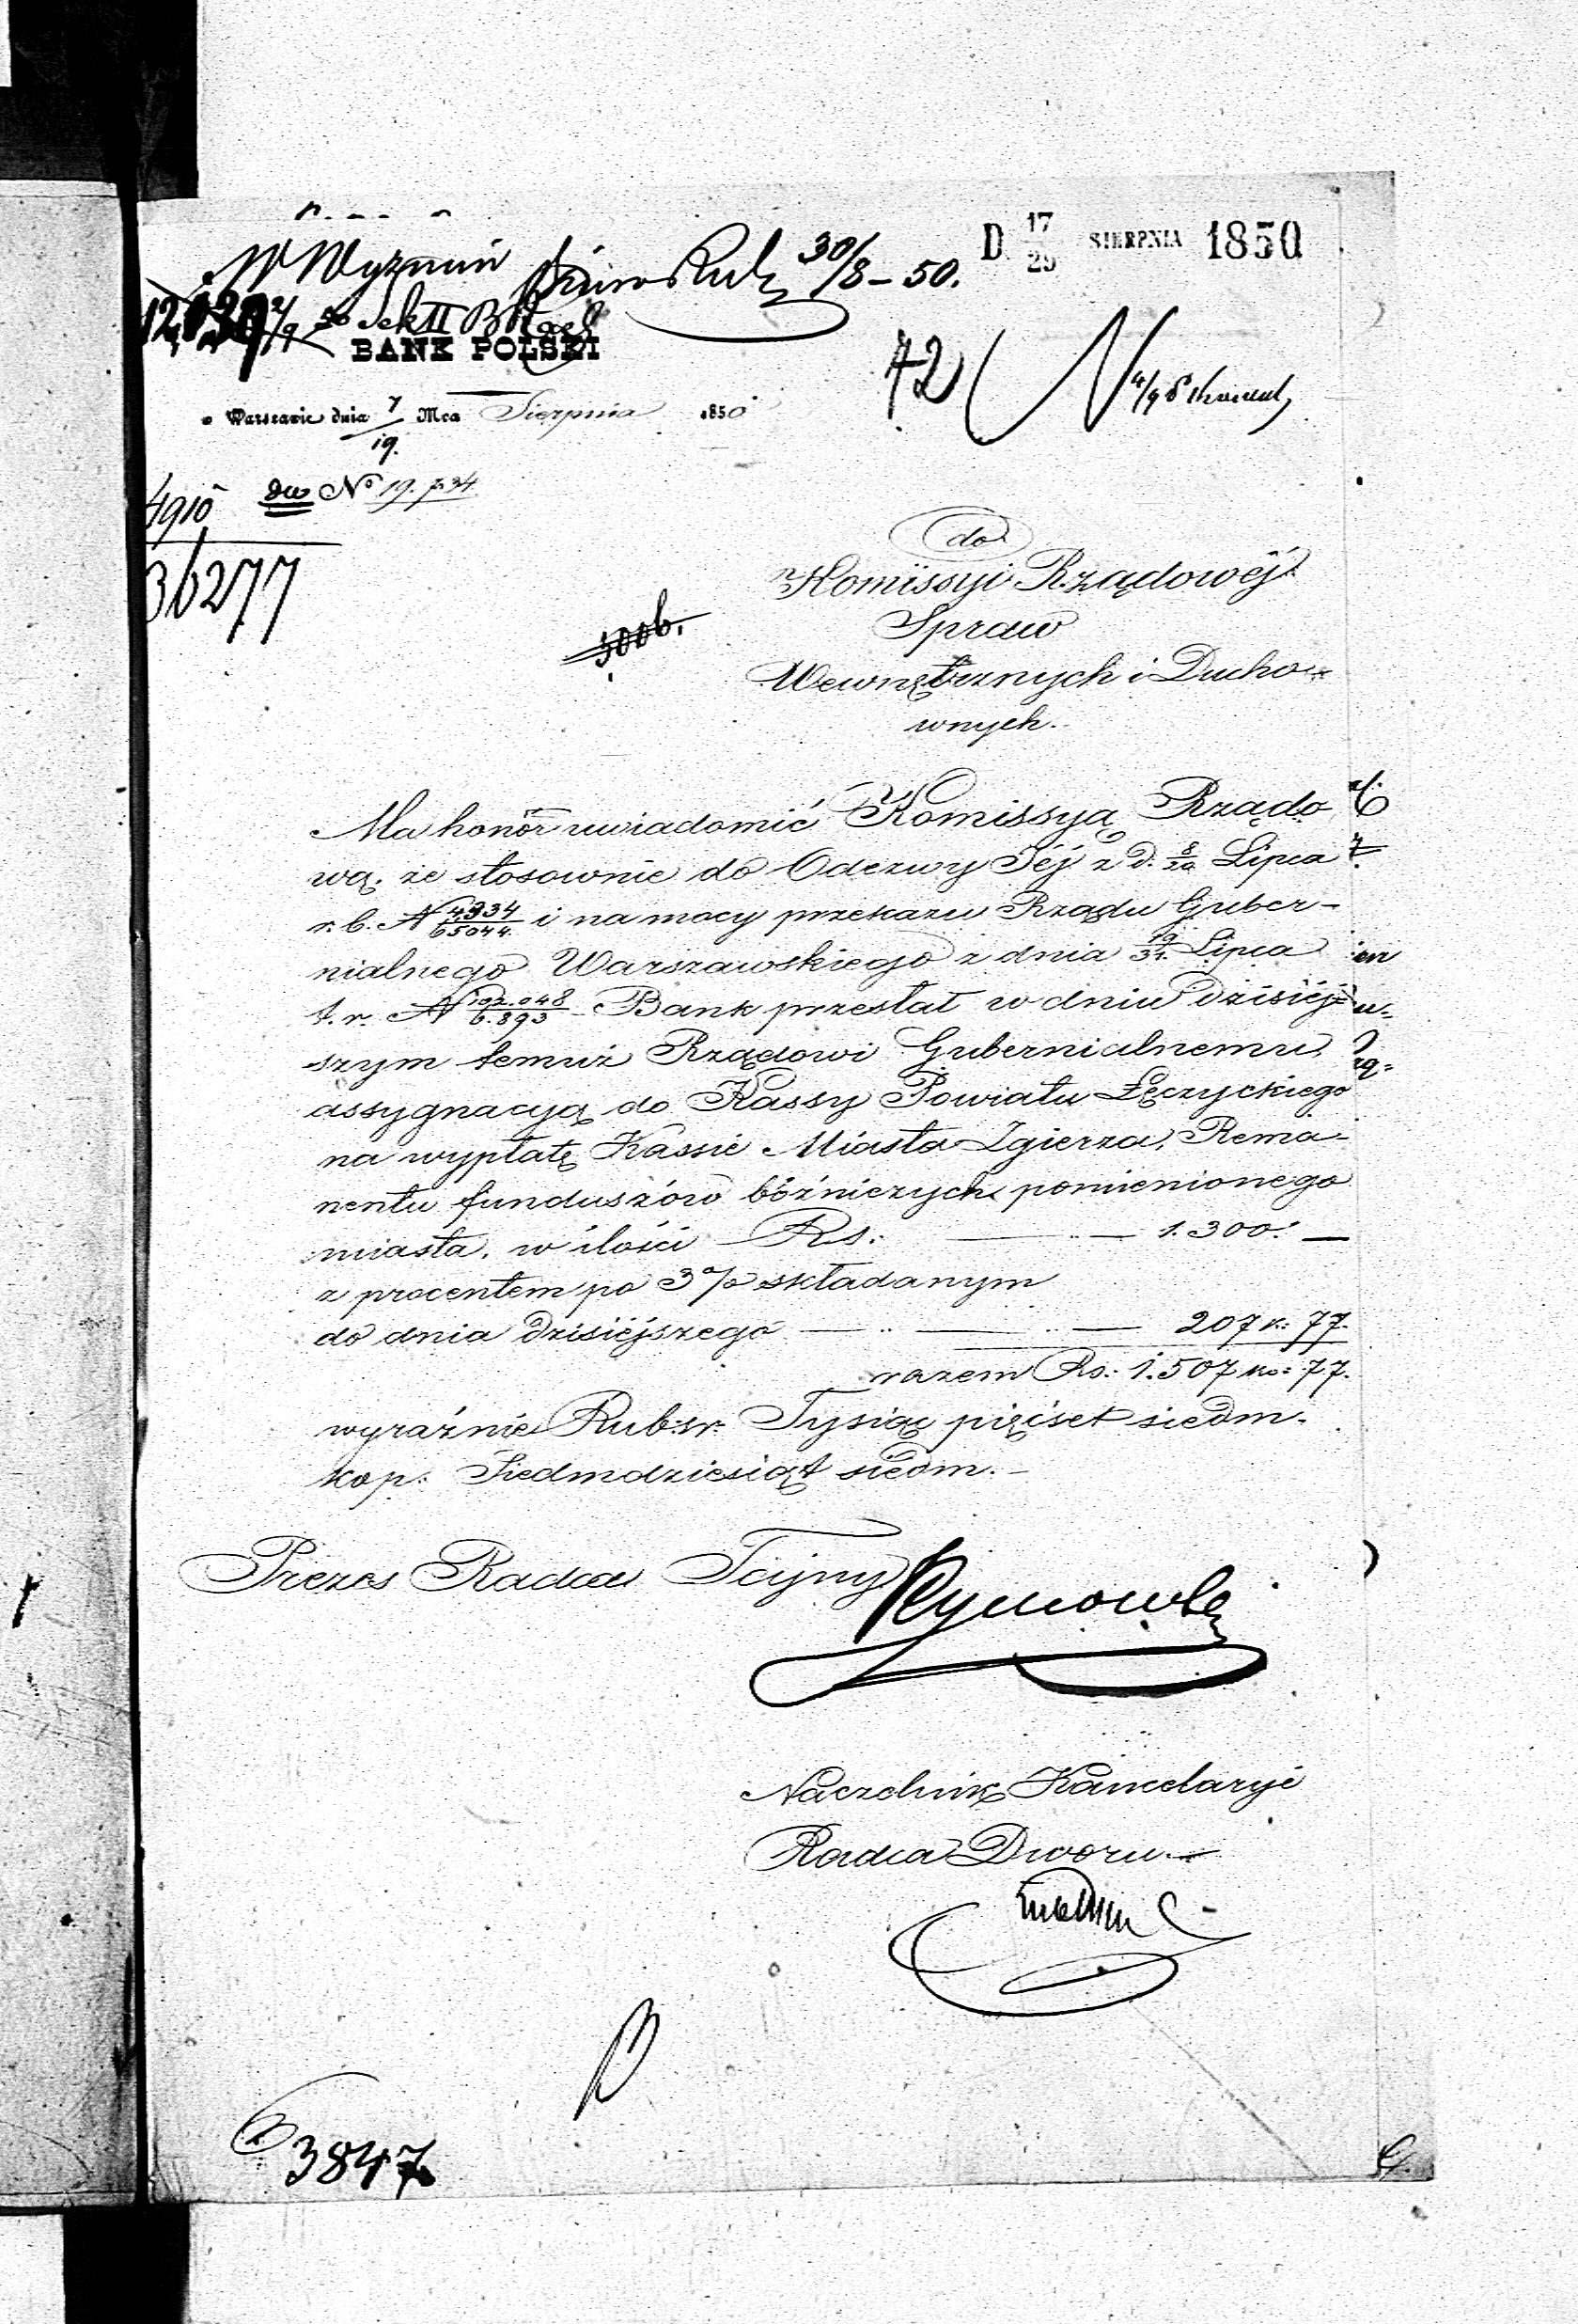 D 17/29 SIERPNIA 1850
W Wyznań 30/8 – 50.
12,039 2/9 do Sek II
BANK POLSKI
72
w Warszawie dnia 7/19. Mca Sierpnia 1850
4910 No 19.734
36277
do
Komissyi Rządowéj
Spraw
Wewnętrznych i Ducho-
wnych.
Ma honor uwiadomić Komissyą Rządo
wą, że stosownie do Odezwy Jéj z d. 8/20 Lipca
r. b. N 4934/65044. i na mocy przekazu Rządu Guber-
nialnego Warszawskiego z dnia 19/31. Lipca
t. r. N 102.048/6.893 Bank przesłał w dniu dzisiéj-
szym temuż Rządowi Gubernialnemu
assygnacyą do Kassy Powiatu Łęczyckiego
na wypłatę Kassie Miasta Zgierza, Rema-
nentu funduszów bóźniczych pomienionego
miasta, w ilości Rs: — 1.300. —
z procentem po 3 % składanym
do dnia dzisiéjszego — — 207 k: 77.
razem Rs: 1.507 ko: 77.
wyraźnie Rub:sr. Tysiąc pięćset siedm.
kop. Siedmdziesiąt siedm. –
Prezes Radca Tajny
Naczelnik Kancelaryi
Radca Dworu
3847